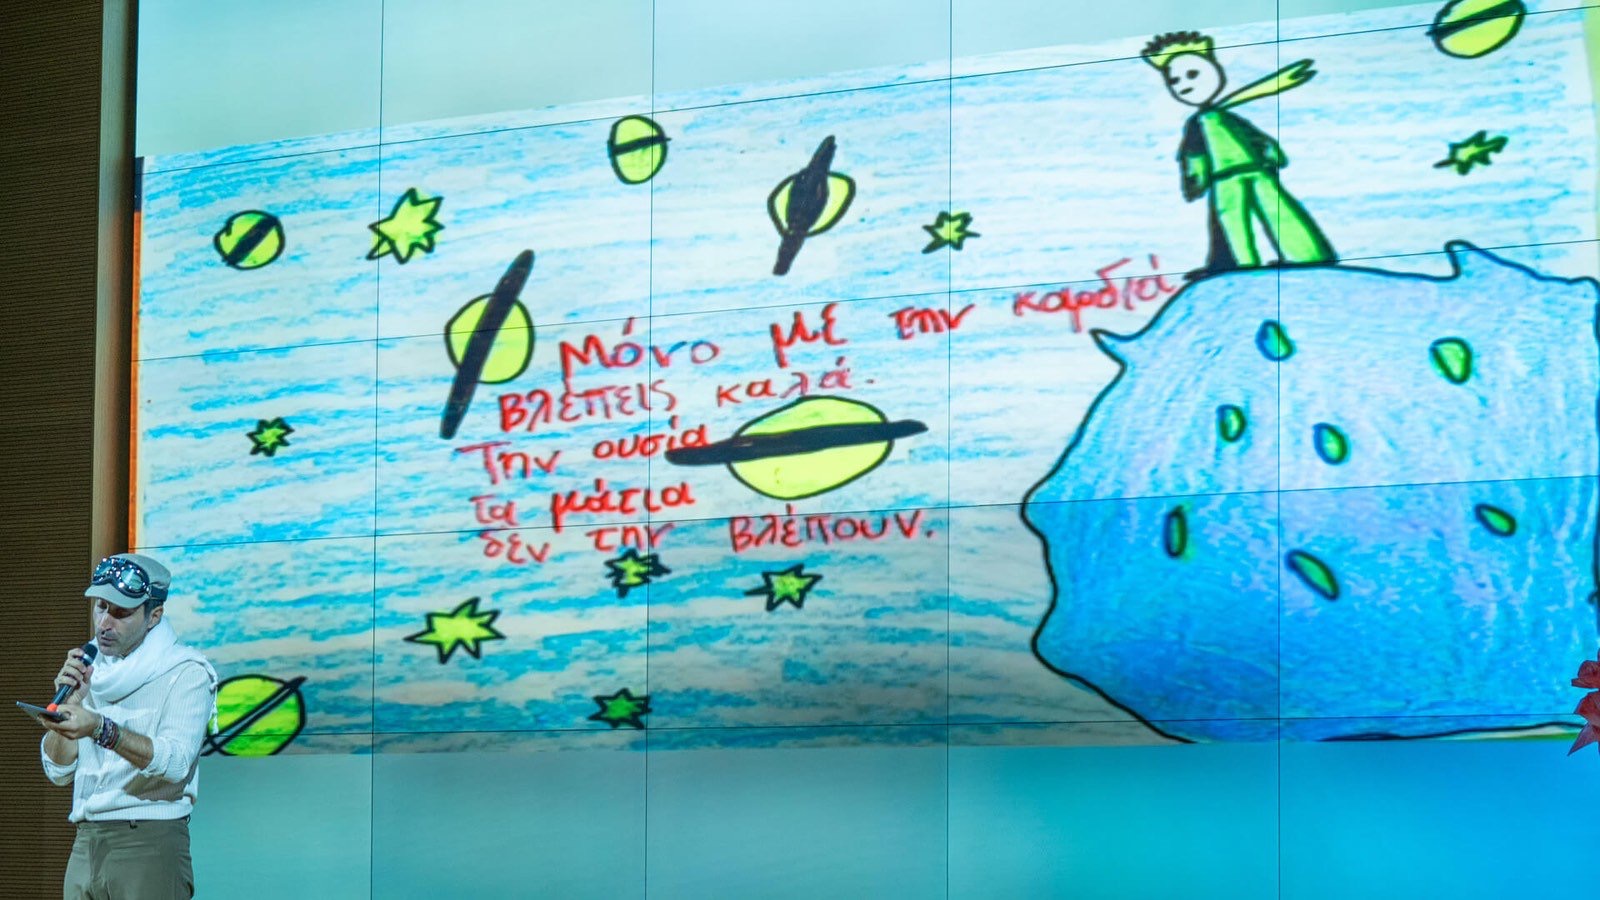 Μόνο με την καρδιά
βλέπεις καλά.
Την ουσία
τα μάτια
δεν την βλέπουν.